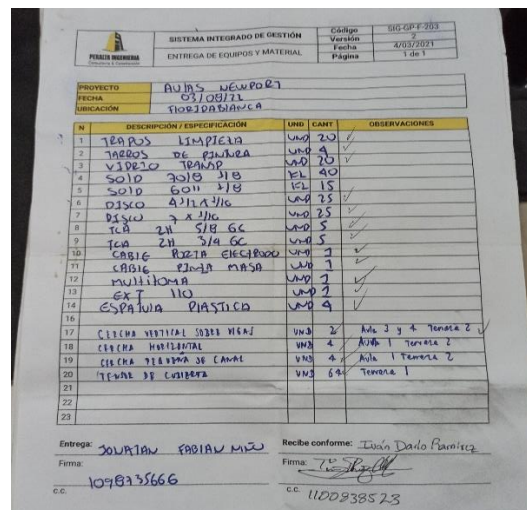 PERALTA INGENIERIA
Consultoría & Construcción
SISTEMA INTEGRADO DE GESTIÓN
ENTREGA DE EQUIPOS Y MATERIAL
Código SIG-GP-F-203
Versión 2
Fecha 4/03/2021
Página 1 de 1
PROYECTO AULAS NEWPORT
FECHA 03/08/22
UBICACIÓN FLORIDABLANCA
N DESCRIPCIÓN / ESPECIFICACIÓN UND CANT OBSERVACIONES
1 TRAPOS LIMPIEZA UND 20 ✓
2 TARROS DE PINTURA UND 4 ✓
3 VIDRIO TRANSP UND 20 ✓
4 SOLD 7018 1/8 KL 40
5 SOLD 6011 1/8 KL 15
6 DISCO 4 1/2 X 1/16 UND 25 ✓
7 DISCO 7 X 1/16 UND 25 ✓
8 TCA 2H 5/8 GC UND 5 ✓
9 TCA 2H 3/4 GC UND 5 ✓
10 CABLE PORTA ELECTRODO UND 1 ✓
11 CABLE PINZA MASA UND 1 ✓
12 MULTITOMA UND 1 ✓
13 EXT 110 UND 1 ✓
14 ESPATULA PLASTICA UND 4 ✓
16
17 CERCHA VERTICAL SOBRE VIGAS UND 2 Aula 3 y 4 Terraza 2 ✓
18 CERCHA HORIZONTAL UND 4 Aula 1 Terraza 2
19 CERCHA PEQUEÑA DE CANAL UND 4 Aula 1 Terraza 2
20 TENSOR DE CUBIERTA UND 64 Terraza 1
21
22
23
Entrega: JONATAN FABIAN NIÑO
Recibe conforme: Iván Darío Ramírez
Firma:
Firma:
1098735666
c.c.
c.c. 1100838523